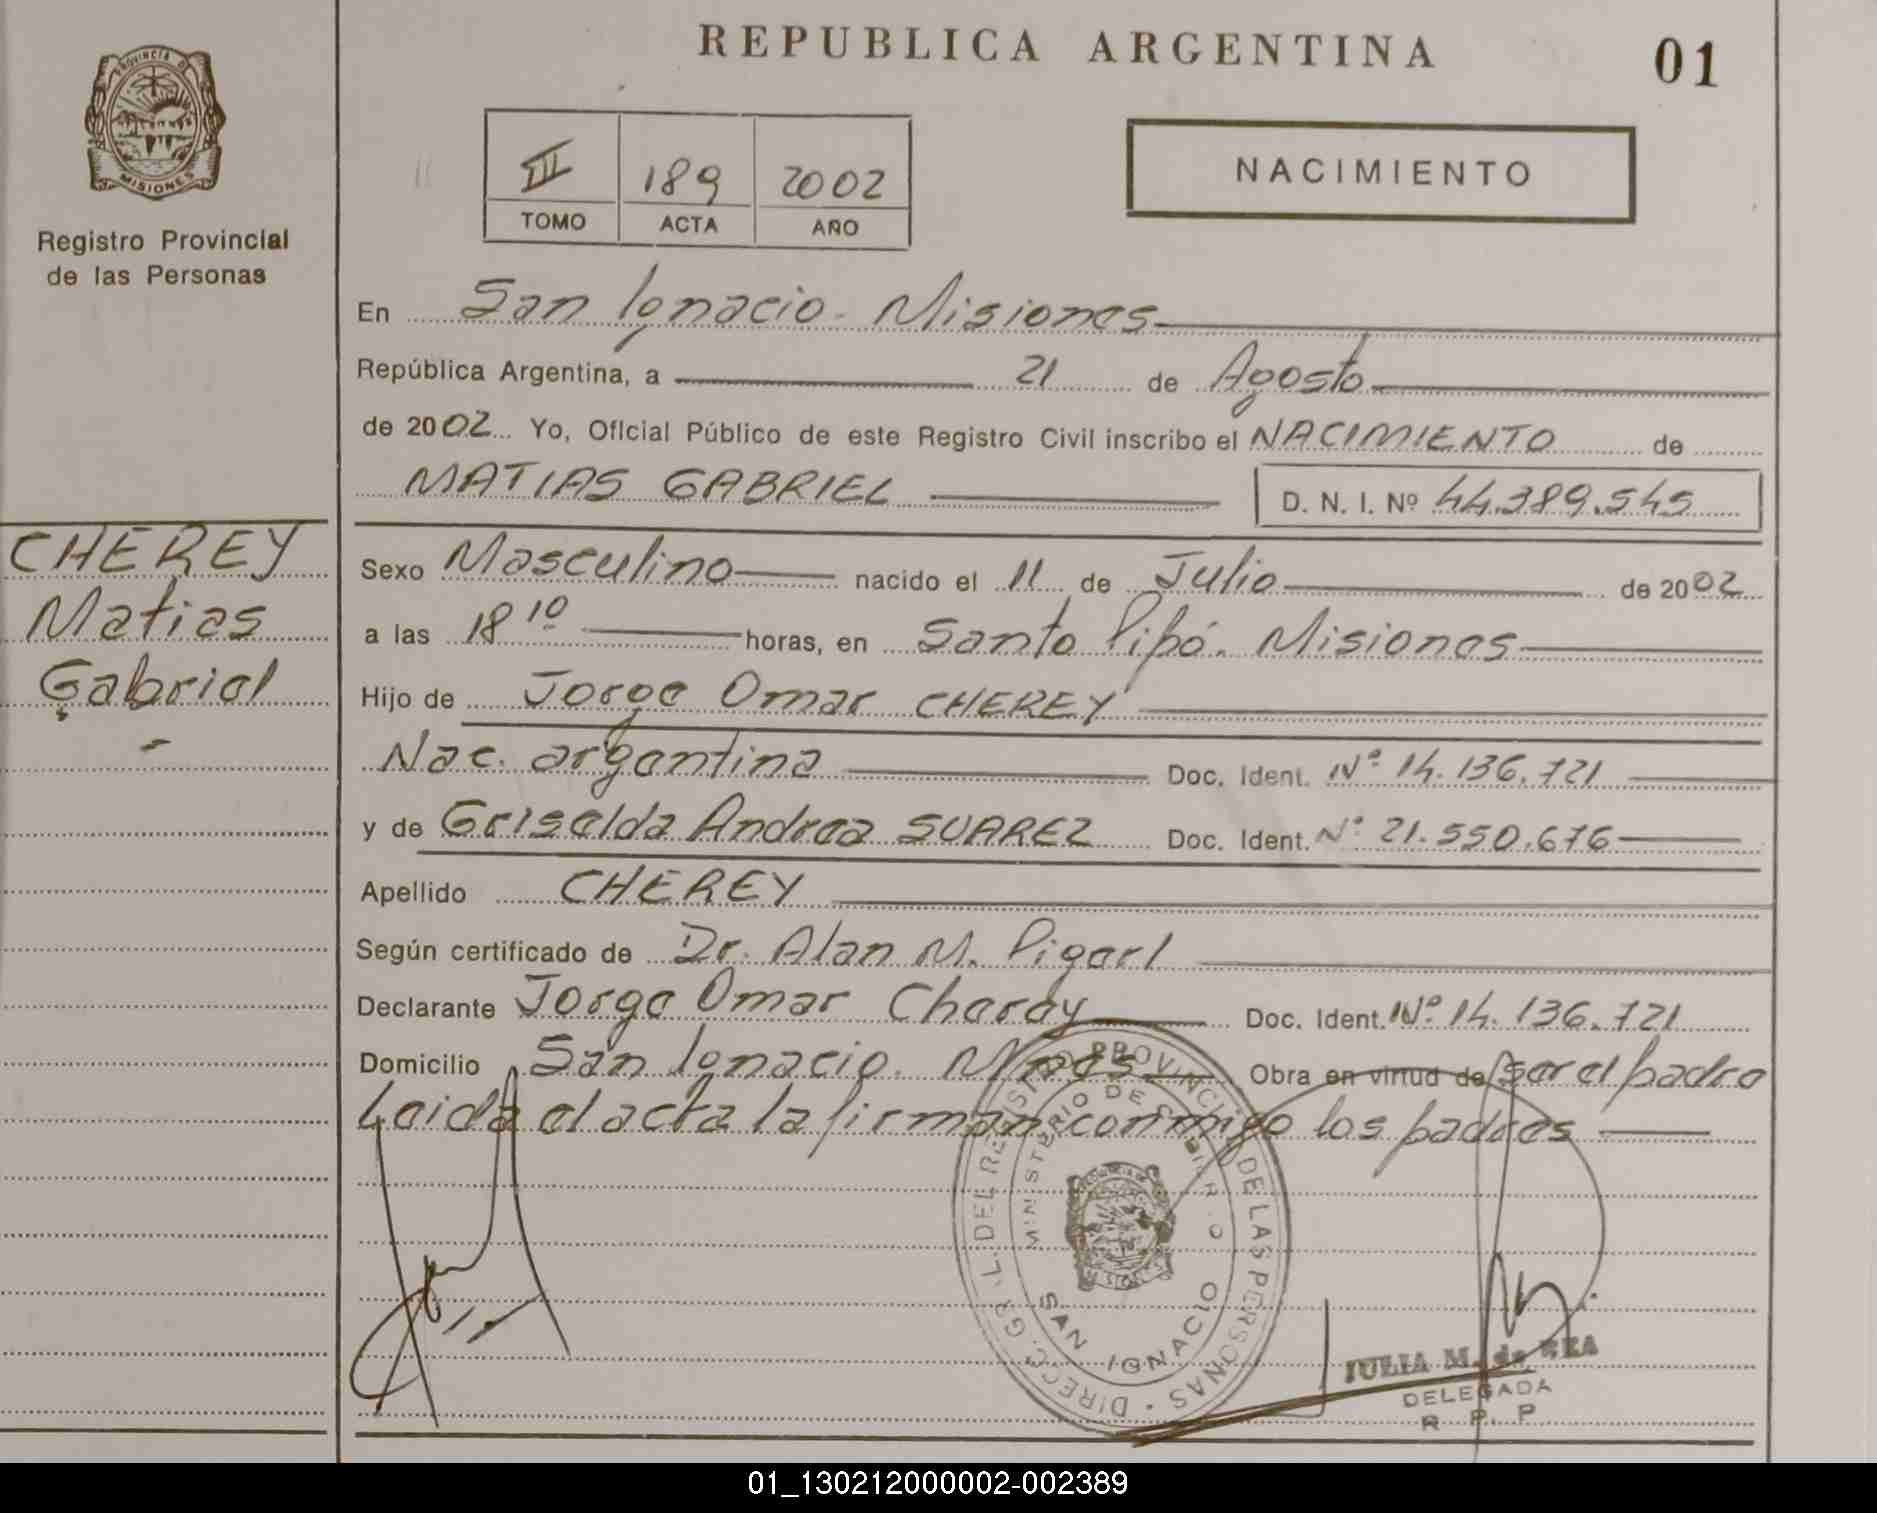 REPUBLICA ARGENTINA
01
PROVINCIA DE
MISIONES
Registro Provincial
de las Personas
III 189 2002
TOMO ACTA AÑO
NACIMIENTO
En San Ignacio - Misiones
República Argentina, a 21 de Agosto
de 2002 Yo, Oficial Público de este Registro Civil inscribo el NACIMIENTO de
MATIAS GABRIEL D. N. I. Nº 44.389.545
CHEREY
Matias
Gabriel
Sexo Masculino nacido el 11 de Julio de 2002
a las 18 10 horas, en Santo Pipó. Misiones
Hijo de Jorge Omar CHEREY
Nac. argentina Doc. Ident. Nº 14.136.721
y de Griselda Andrea SUAREZ Doc. Ident. Nº 21.550.676
Apellido CHEREY
Según certificado de Dr. Alan M.
Declarante Jorge Omar Cherey Doc. Ident. Nº 14.136.721
Domicilio San Ignacio. Mnes Obra en virtud de ser el padre
Leida el acta la firman conmigo los padres
DIRECC. GRL. DEL REGISTRO PROVINCIAL DE LAS PERSONAS
MINISTERIO DE GOBIERNO
MISIONES
SAN IGNACIO
JULIA M. de REA
DELEGADA
R. P. P.
01_130212000002-002389